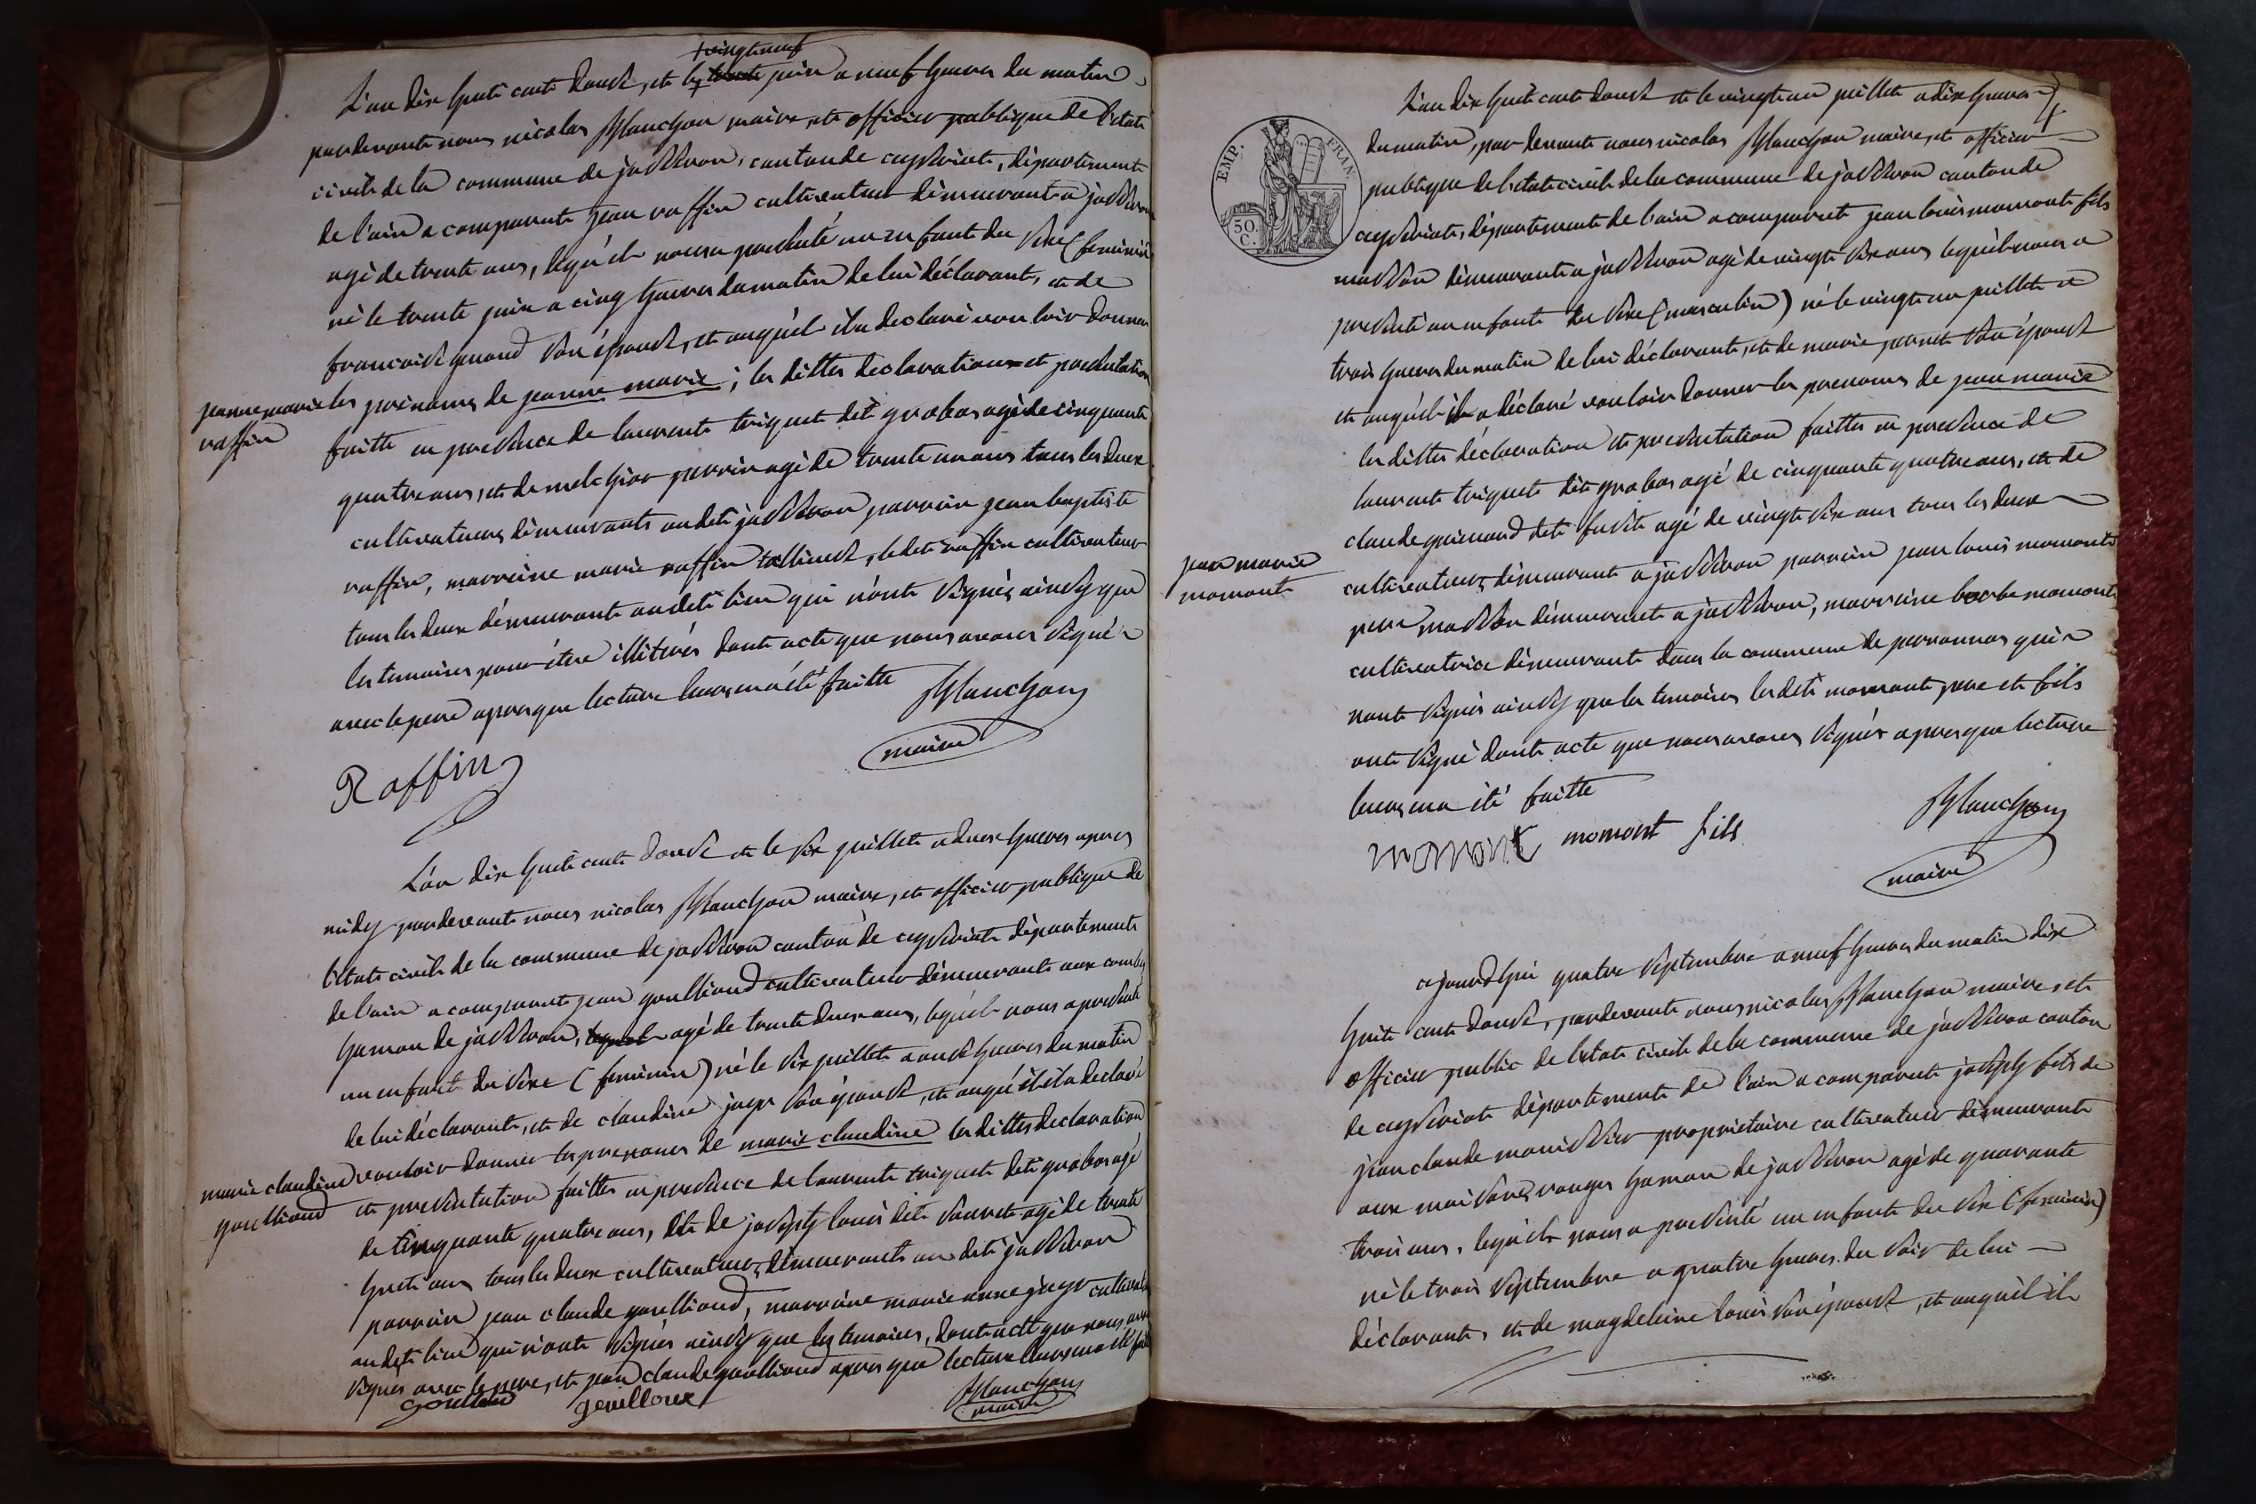 + vingt neuf
L'an dix huit cent douze, et le trente juin a neuf heures du matin
pardevant nous nicolas Blanchon maire, et officier publique de l'etat
civil de la commune de jasseron, canton de ceyseriat, département
de l'ain a comparut jean raffin cultivateur démeurant a jasseron
agé de trente ans, lequ'el nous a presenté un enfant du sexe (feminin)
né le trente juin a cinq heures du matin de lui déclarant, et de
francoise son épouse, et auqu'el il a declaré vouloir donner
les prénoms de jeanne marie ; les dittes declarations et presentation
jeanne marie
raffin
faitte en presence de laurent triquet dit grabas agé de cinquante
quatre ans, et de melchior perrin agé de trente un ans tous les deux
cultivateurs démeurants audit jasseron parrain jean baptiste
raffin, marraine marie raffin, ledit raffin cultivateur
tous les deux démeurant audit lieu qui n'ont signés ainsy que
les temoins pour être illitérés dont acte que nous avons signé
avec le pere apres que lecture leurs en a été faitte Blanchon
maire
Raffin
L'an dix huit cent douze et le six juillet a deux heures apres
midy pardevant nous nicolas Blanchon maire, et officier publique de
l'etat civil de la commune de jasseron canton de ceyseriat département
de l'ain a comparut jean cultivateur démeurant aux combes
hamau de jasseron, lequel agé de trente deux ans, lequel nous a presenté
un enfant du sexe (feminin) né le six juillet a onze heures du matin
de lui déclarant, et de claudine son épouse, et auqu'el il a declaré
vouloir donner les prenoms de marie claudine les dittes declaration
marie claudine
et presentation faittes en presence de laurent triquet dit grabas agé
de cinquante quatre ans, et de joseph louis dit agé de trente
huit ans tous les deux cultivateurs démeurants audit jasseron
parrain jean claude, marraine marie anne
audit lieu qui n'ont signés ainsy que les temoins, dont acte que nous avons
signés avec le pere, et jean claude apres que lecture leurs en a été faitte
gouilloux
Blanchon
maire
4
EMP. FRAN.
50. C.
L'an dix huit cent douze et le vingt un juillet a dix heures
du matin, par devant nous nicolas Blanchon maire, et officier
publique de l'etat civil de la commune de jasseron canton de
ceyseriat, département de l'ain a comparut jean louis momont fils
masson démeurant a jasseron agé de vingt six ans lequ'el nous a
presenté un enfant du sexe (masculin) né le vingt un juillet a
trois heures du matin de lui déclarant, et de marie son épouse
et auqu'el il a déclaré vouloir donner les prenoms de jean marie
les dittes déclaration et presentation faittes en presence de
laurent triquet dit grabas agé de cinquante quatre ans, et de
claude dit agé de vingt six ans tous les deux
jean marie
momont
cultivateurs démeurant a jasseron parrain jean louis momont
pere masson démeurant a jasseron, marraine barbe momont
cultivatrice démeurant dans la commune de peronnas qui
n'ont signés ainsy que les temoins les dits momont pere et fils
ont signé dont acte que nous avons signés apres que lecture
leurs en a été faitte
momont momont fils Blanchon
maire
cejourdhui quatre septembre a neuf heures du matin dix
huit cent douze, pardevant nous nicolas Blanchon maire, et
officier public de l'etat civil de la commune de jasseron canton
de ceyseriat département de l'ain a comparut joseph fils de
jean claude propriétaire cultivateur démeurant
aux maisons rouges hamau de jasseron agé de quarante
trois ans, lequ'el nous a presenté un enfant du sexe (feminin)
né le trois septembre a quatre heures du soir de lui
déclarant, et de magdeleine louis son épouse, et auquel il